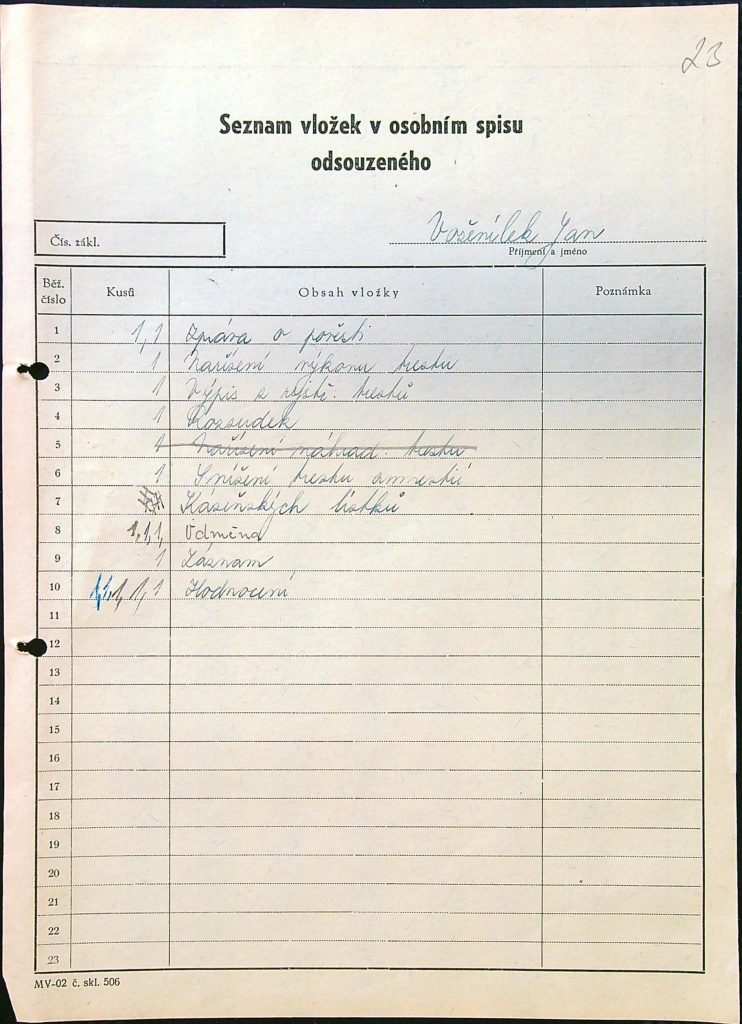 23
Seznam vložek v osobním spisu
odsouzeného
Čís. zákl.
Voženílek Jan
Příjmení a jméno
Běž. číslo Kusů Obsah vložky Poznámka
1 1,1 Zpráva o pověsti
2 1 Nařízení výkonu trestu
3 1 Výpis z rejstř. trestů
4 1 Rozsudek
5 1 Nařízení náhrad. trestu
6 1 Snížení trestu amnestií
7 Kázeňských lístků
8 1,1,1, Odměna
9 1 Záznam
10 1,1,1,1,1 Hodnocení
11
12
13
14
15
16
17
18
19
20
21
22
23
MV-02 č. skl. 506